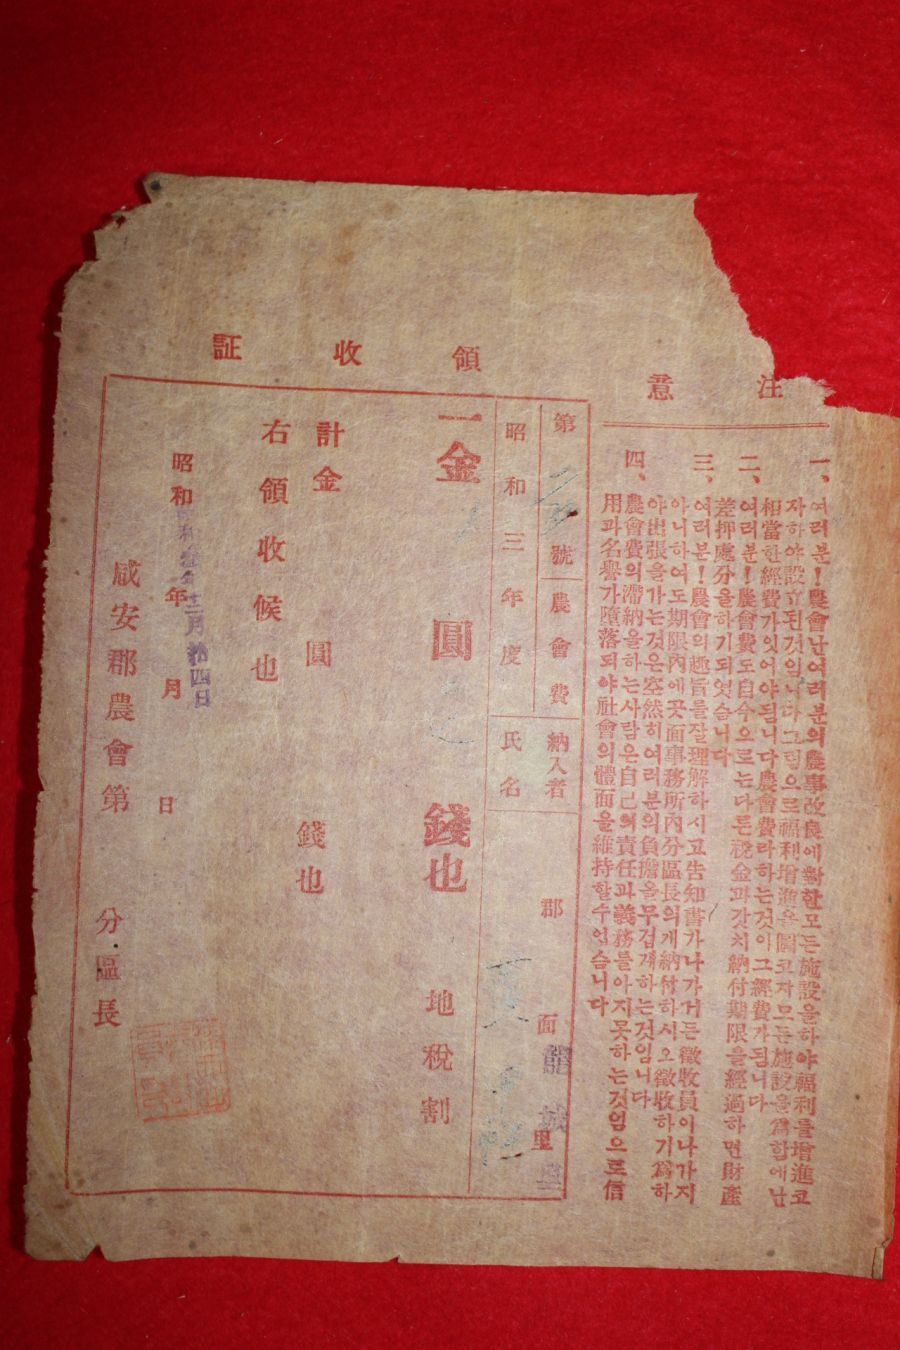 注意
一、여러분！農會난여러분의農事改良에對한모든施設을하야福利를增進코
자하야設立된것임니다그럼으로福利增進을圖코자모든施設을爲함에난
相當한經費가잇어야됨니다農會費라하는것이그經費가됨니다
二、여러분！農會費도自今으로는다른稅金과갓치納付期限을經過하면財產
差押處分을하기되엿슴니다
三、여러분！農會의趣旨를잘理解하시고告知書가나가거든徵收員이나가지
아니하여도期限內에곳面事務所內分區長의게納付하시오徵收하기爲하
야出張을가는것은空然히여러분의負擔을무겁게하는것임니다
四、農會費의滯納을하는사람은自己의責任과義務를아지못하는것임으로信
用과名譽가墮落되야社會의體面을維持할수업슴니다
領收証
第 號 農會費 納入者 郡 面 龍城里 里
昭和三年度 氏名
一金 圓 錢也 地稅割
計金 圓 錢也
右領收候也
昭和 年 月 日
月拾四日
咸安郡農會第 分區長